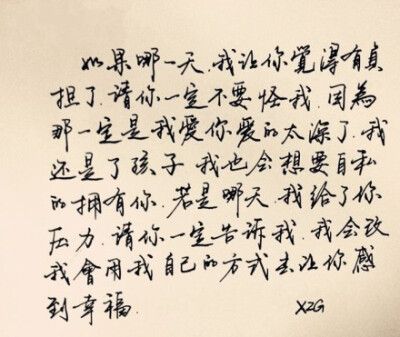 如果哪一天.我让你覺得有負
担了.请你一定不要怪我.因為
那一定是我爱你爱的太深了.我
还是了孩子.我也会想要自私
的拥有你.若是哪天.我给了你
压力.请你一定告诉我.我会改
我會用我自己的方式去让你感
到幸福.
XZG